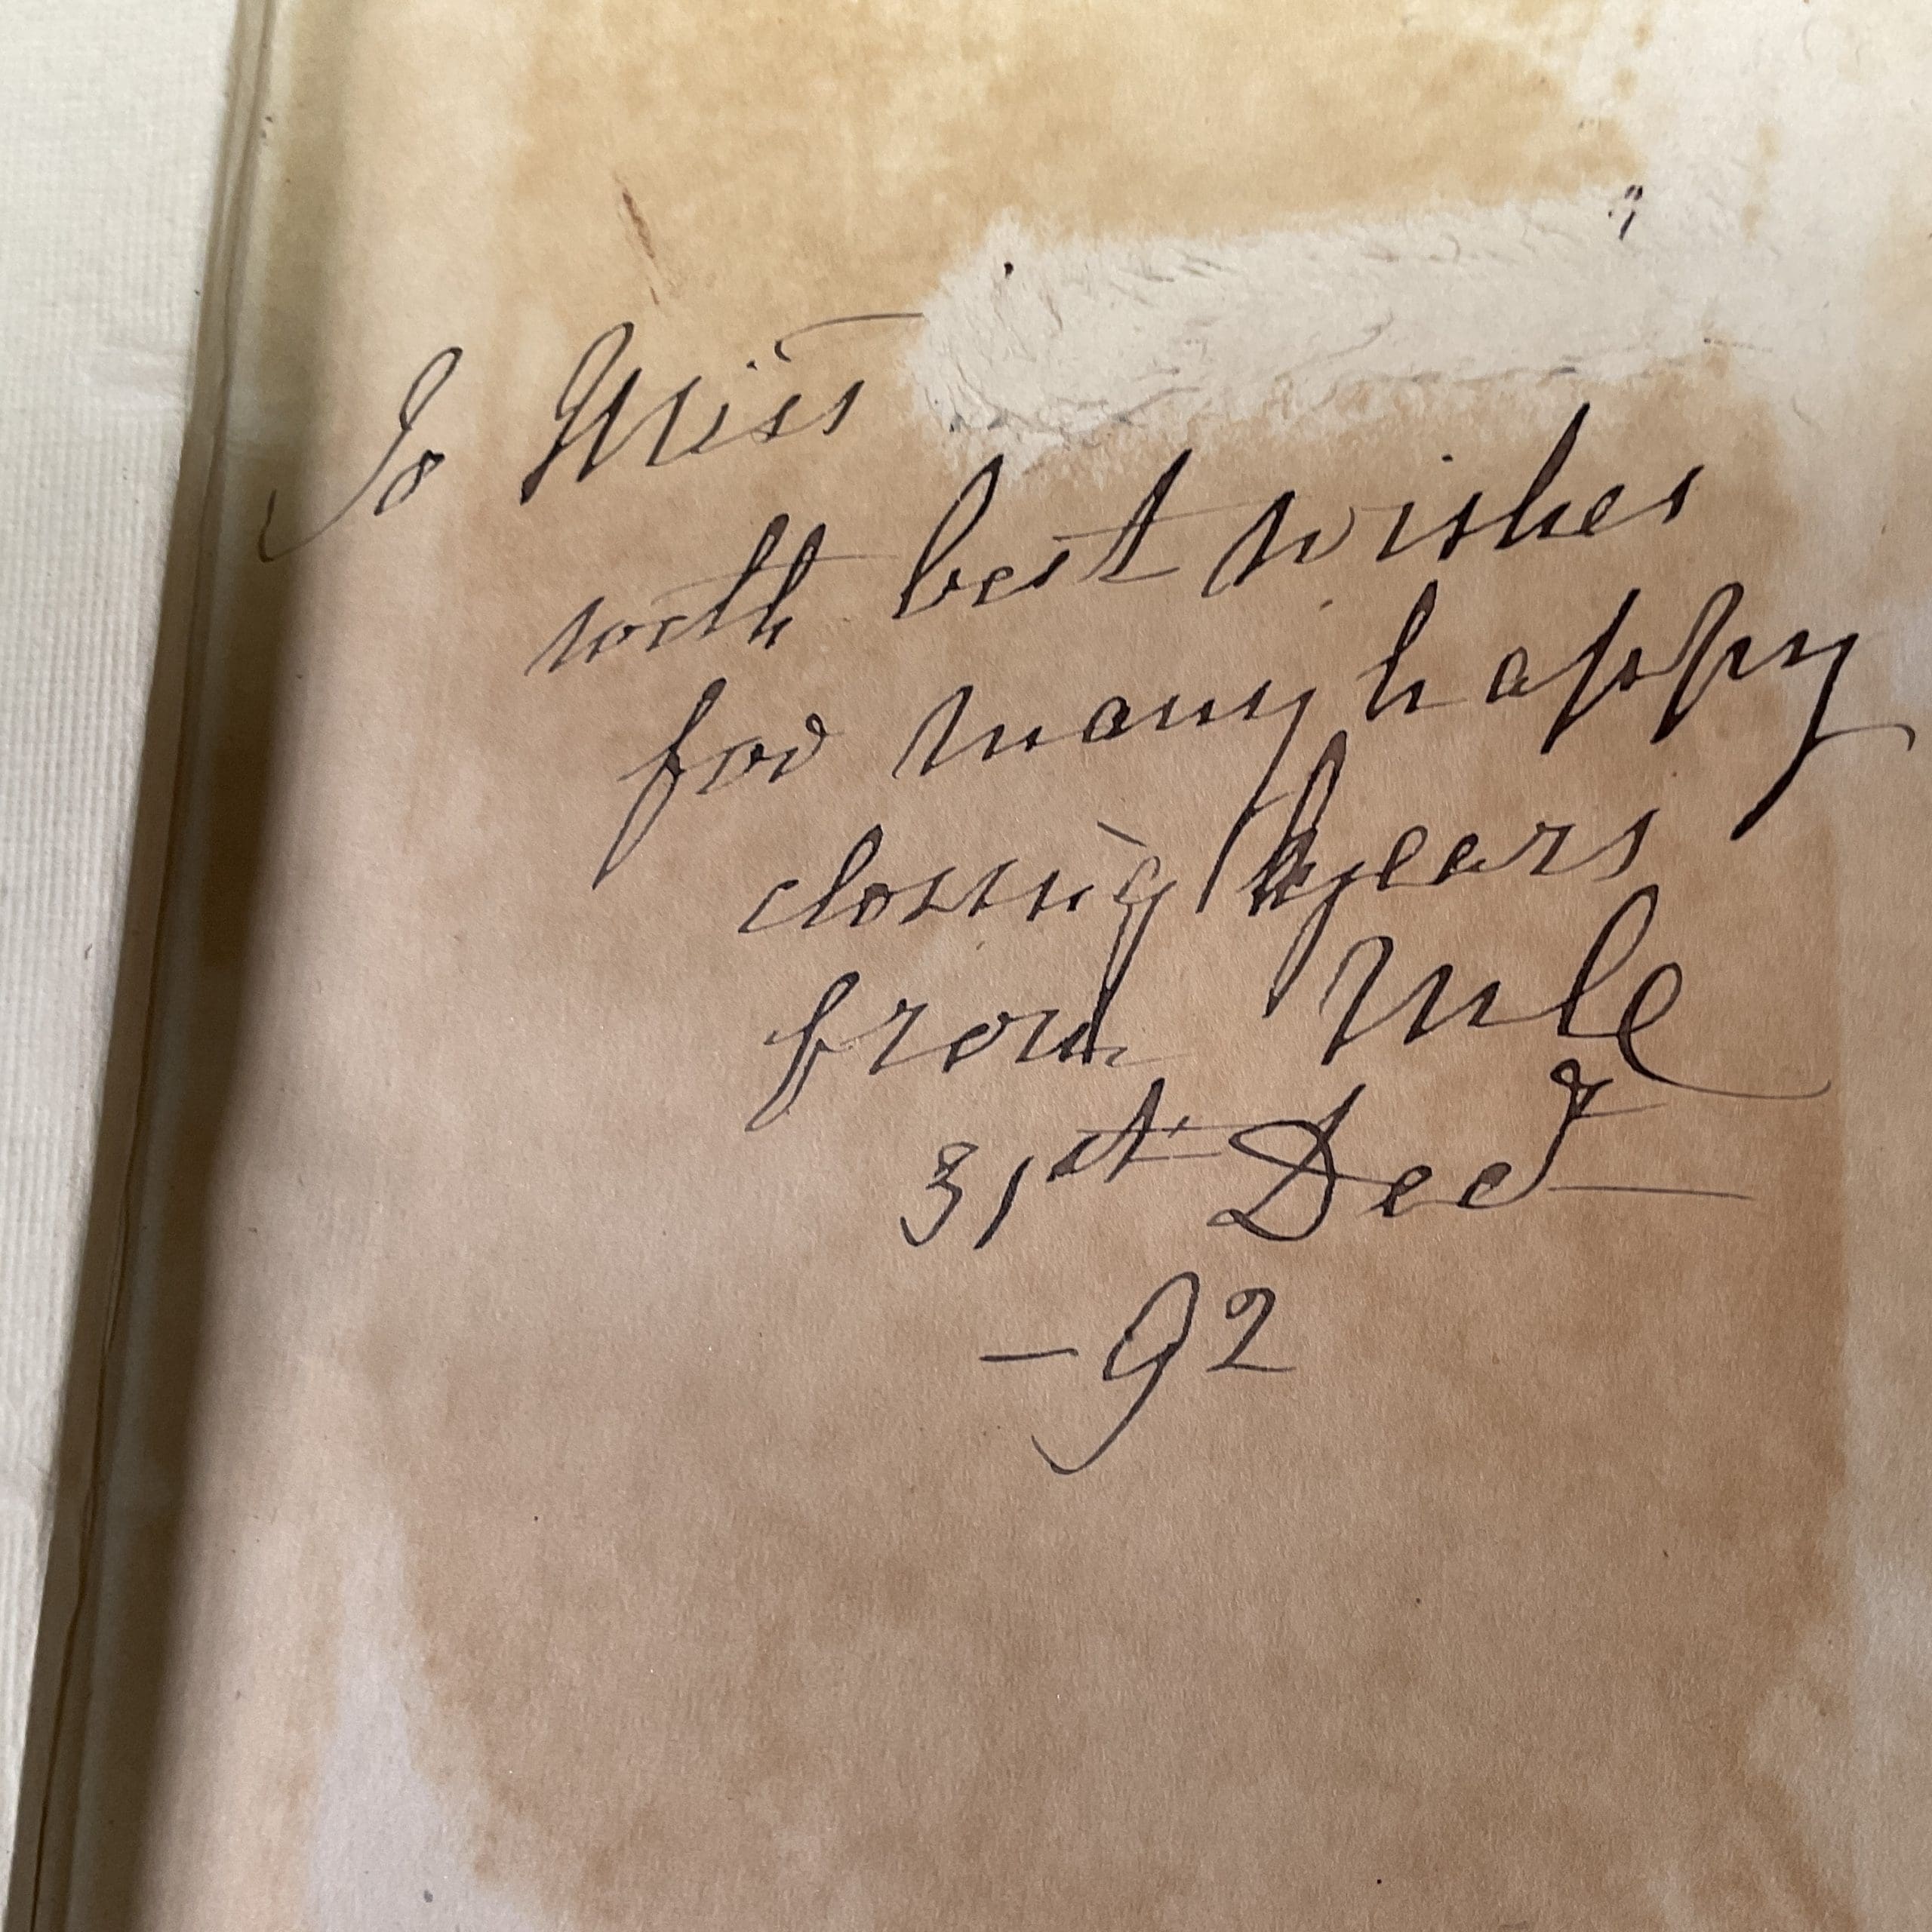 To Miss
with best wishes
for many happy
closing years
from
31st Dec
-92